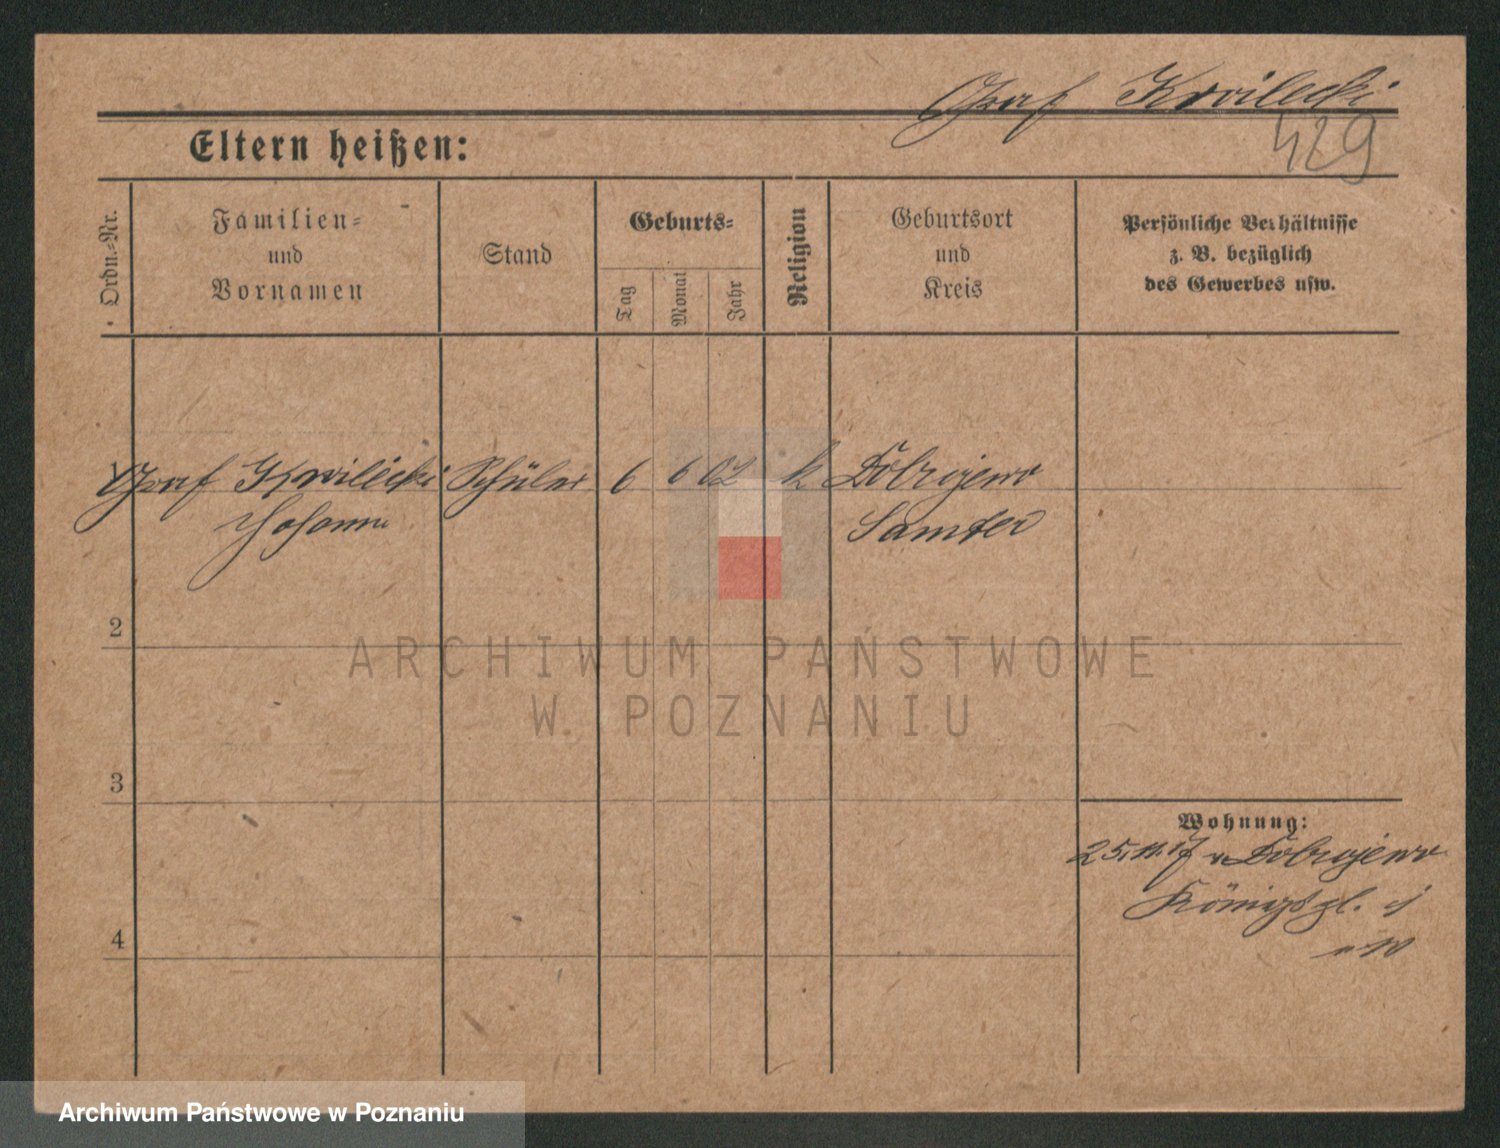 Graf Kwilecki
429
Eltern heißen:
Ordn.-Nr.
Familien-
und
Vornamen
Stand
Geburts-
Tag
Monat
Jahr
Religion
Geburtsort
und
Kreis
Persönliche Verhältnisse
z. B. bezüglich
des Gewerbes usw.
Graf Kwilecki Schüler 6 6 02 k Dobrojewo
Johann Samter
2
3
4
Wohnung:
25.11.17 v Dobrojewo
Königspl.
ARCHIWUM PAŃSTWOWE
W POZNANIU
Archiwum Państwowe w Poznaniu